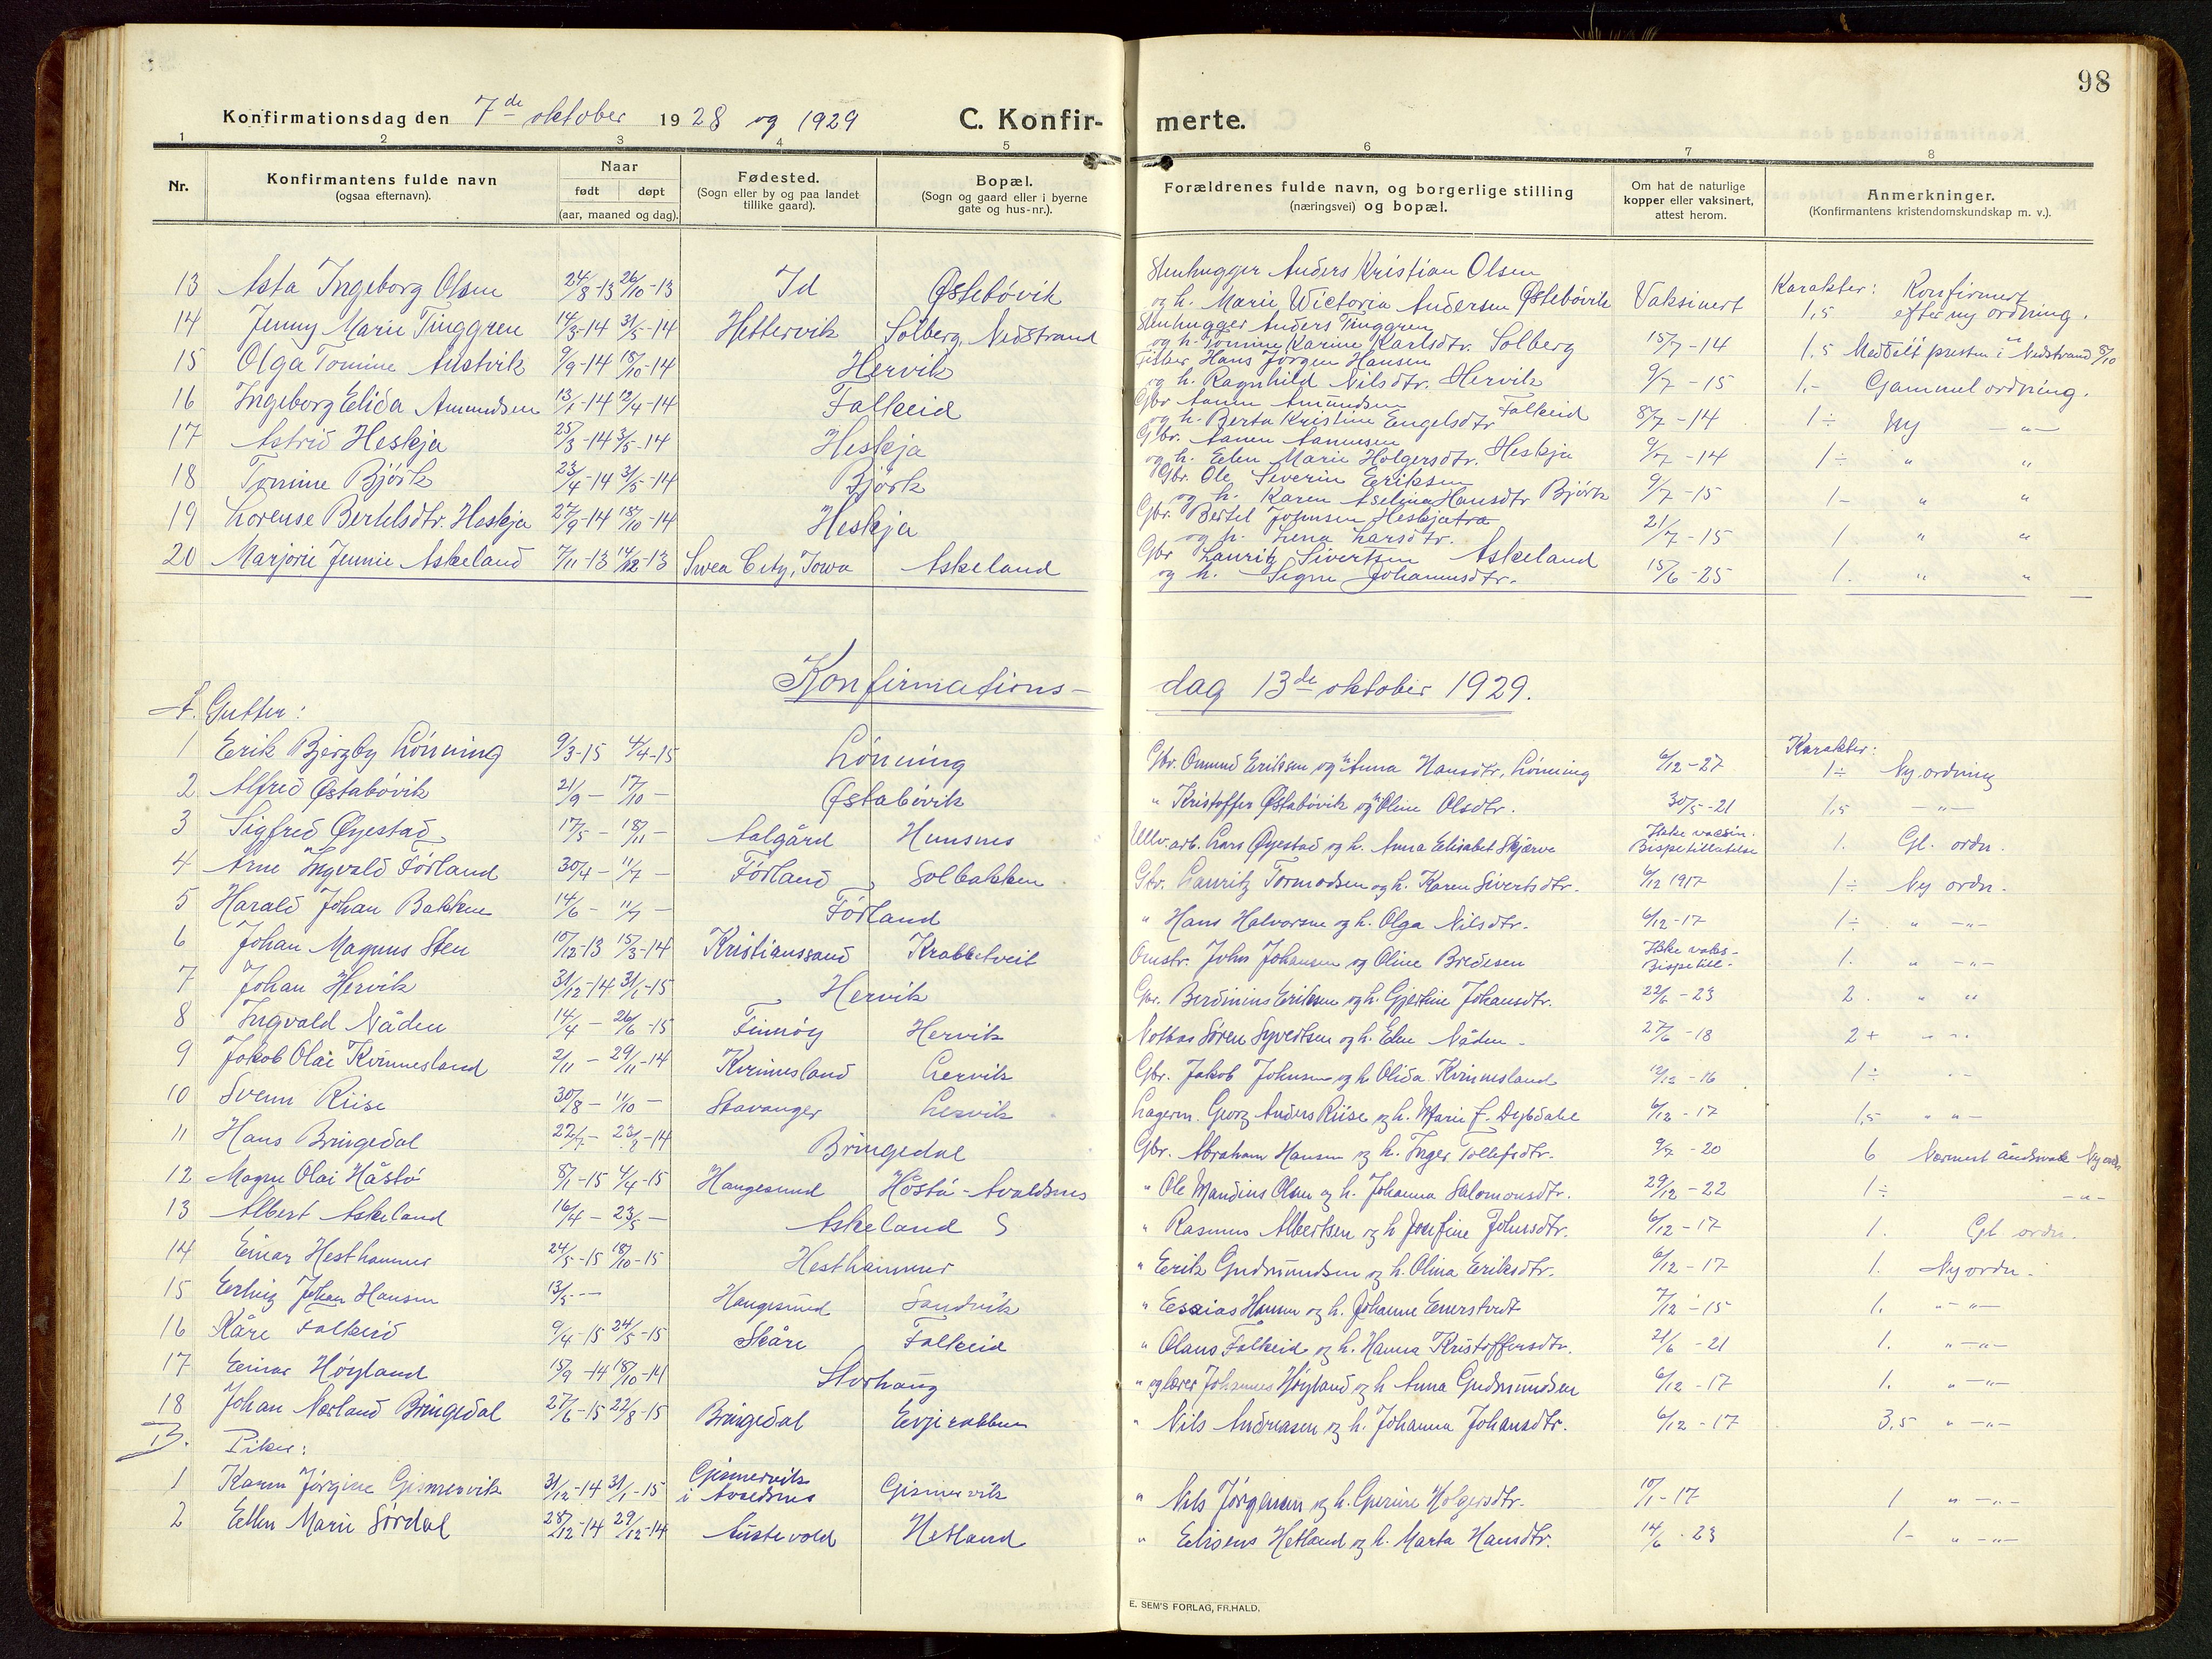 98
Konfirmationsdag den 7de oktober 1928 og 1929 C. Konfirmerte.
1 2 3 4 5 6 7 8
Nr. Konfirmantens fulde navn (ogsaa efternavn). Naar født døpt (aar, maaned og dag). Fødested. (Sogn eller by og paa landet tillike gaard). Bopæl. (Sogn og gaard eller i byerne gate og hus-nr.). Forældrenes fulde navn, og borgerlige stilling (næringsvei) og bopæl. Om hat de naturlige kopper eller vaksinert, attest herom. Anmerkninger. (Konfirmantens kristendomskundskap m. v.).
13 Asta Ingeborg Olsen 24/8-13 26/10-13 Id Østebövik Stenhugger Anders Kristian Olsen og h. Marie Wictoria Andersen Østebövik Vaksinert Karakter: 1,5 Konfirmert efter ny ordning.
14 Jenny Marie Tinggren 14/3-14 31/5-14 Hettervik Solberg, Nedstrand Stenhugger Anders Tinggren og h. Tomine Karine Karlsdtr. Solberg 15/7-14 1,5 Meddelt presten i Nedstrand 8/10
15 Olga Tomine Austvik 9/9-14 18/10-14 Hervik Fisker Hans Jørgen Hansen og h. Ragnhild Nilsdtr. Hervik 9/7-15 1,- Gammel ordning.
16 Ingeborg Elida Amundsen 13/1-14 12/4-14 Falkeid Gbr Aanen Amundsen og h. Berta Kristine Engelsdtr Falkeid 8/7-14 1÷ Ny -"-
17 Astrid Heskja 25/3-14 3/5-14 Heskja Gbr. Aanen Aanensen og h. Elen Marie Holgersdtr. Heskja 9/7-14 1÷ " "
18 Tomine Björk 23/4-14 31/5-14 Björk Gbr. Ole Severin Eriksen og h. Karen Aselina Hansdtr Björk 9/7-15 1- " "
19 Lorense Bertelsdtr. Heskja 27/9-14 18/10-14 Heskja Gbr. Bertel Johnsen Heskjatra og h. Lena Larsdtr. 21/7-15 1 " "
20 Marjorie Jennie Askeland 7/11-13 14/12-13 Swea City, Iowa Askeland Gbr Lauritz Sivertsen Askeland og h. Signe Johannesdtr. 15/6-25 1. " "
Konfirmations-dag 13de oktober 1929.
A. Gutter: Karakter:
1 Erik Bjerzby Lönning 9/3-15 4/4-15 Lönning Gbr. Omund Eriksen og h. Anna Hansdtr, Lönning 6/12-27 1÷ Ny ordning
2 Alfred Østabövik 21/9- 17/10- Østabövik " Kristoffer Østabövik og h. Oline Olsdtr. 30/5-21 1,5 -"-
3 Sigfred Øyestad 17/5- 18/11- Aalgård Hunsnes Ullv.arb. Lars Øyestad og h. Anna Elisabet Skjæve Ikke vacsin. Bispetillatelse 1. Gl. ordn.
4 Arne Ingvald Førland 30/4- 11/7- Førland Solbakken Gbr. Lauritz Tormodsen og h. Karen Sivertsdtr. 6/12 1917 1÷ Ny ordn.
5 Harald Johan Bakken 14/6- 11/7- Førland " Hans Halvorsen og h. Olga Nilsdtr. 6/12-17 1÷ " -"-
6 Johan Magnus Sten 10/12-13 15/3-14 Kristianssand Krabbetveit Omstr. John Johansen og Oline Bredesen Ikke vaks- Bispetill- 1. " -"-
7 Johan Hervik 31/12-14 31/1-15 Hervik Gbr. Berdinius Eriksen og h. Gjertine Johansdtr. 22/6-23 2. " "
8 Ingvald Nåden 14/4- 26/6-15 Finnöy Hervik Notbas Sören Syvertsen og h. Elen Nåden- 27/6-18 2+
9 Jakob Olai Kvinnesland 2/11- 29/11-14 Kvinnesland Lervik Gbr. Jakob Johnsen og h Olida Kvinnesland 12/12-16 1÷
10 Svenn Riise 30/8- 11/10- Stavanger Lervik Lagerm. Georg Anders Riise og h. Marie F. Dybdahl 6/12-17 1,5 " "-
11 Hans Bringedal 22/7- 23/8-14 Bringedal Gbr. Abraham Hansen og h. Inger Tollefsdtr. 9/7-20 6 Nærmest åndssvak Ny ordn
12 Magne Olai Håstö 8/1-15 4/4-15 Haugesund Håstö-Avaldsnes " Ole Mandius Olsen og h. Johanna Salomonsdtr. 29/12-22 1÷ -"-
13 Albert Askeland 16/4- 23/5- Askeland S " Rasmus Albertsen og h Josefine Johnsdtr. 6/12-17 1. Gl. ordn.
14 Einar Hesthammer 24/5-15 18/10-15 Hesthammer " Erik Gudmundsen og h. Olina Eriksdtr. 6/12-17 1. Ny ordn.
15 Erling Johan Hansen 13/5-- Haugesund Sandvik " Essias Hansen og h. Johanne Enerstvedt 7/12-15 1. "-"-
16 Kåre Falkeid 9/4-15 24/5-15 Skåre Falkeid " Olaus Falkeid og h. Hanna Kristoffersdtr. 21/6-21 1. "-"-
17 Einar Høyland 15/9-14 18/10-14 Storhaug " og lærer Johannes Høyland og h Anna Gudmundsen 6/12-17 1. "-"-
18 Johan Nærland Bringedal 27/6-15 22/8-15 Bringedal Evjerabben " Nils Andreasen og h. Johanna Johansdtr. 6/12-17 3,5 "-"-
B. Piker:
1 Karen Jørgine Gismervik 31/12-14 31/1-15 Gismervik i Avaldsnes Gismervik " Nils Jørgensen og h. Gjerine Holgersdtr. 10/1-17 1 "-"-
2 Ellen Marie Sördal 28/12-14 29/12-14 Austevold Hetland " Elisens Hetland og h. Marta Hansdtr. 14/6-23 1- "-"-
E. SEM'S FORLAG, FR.HALD.